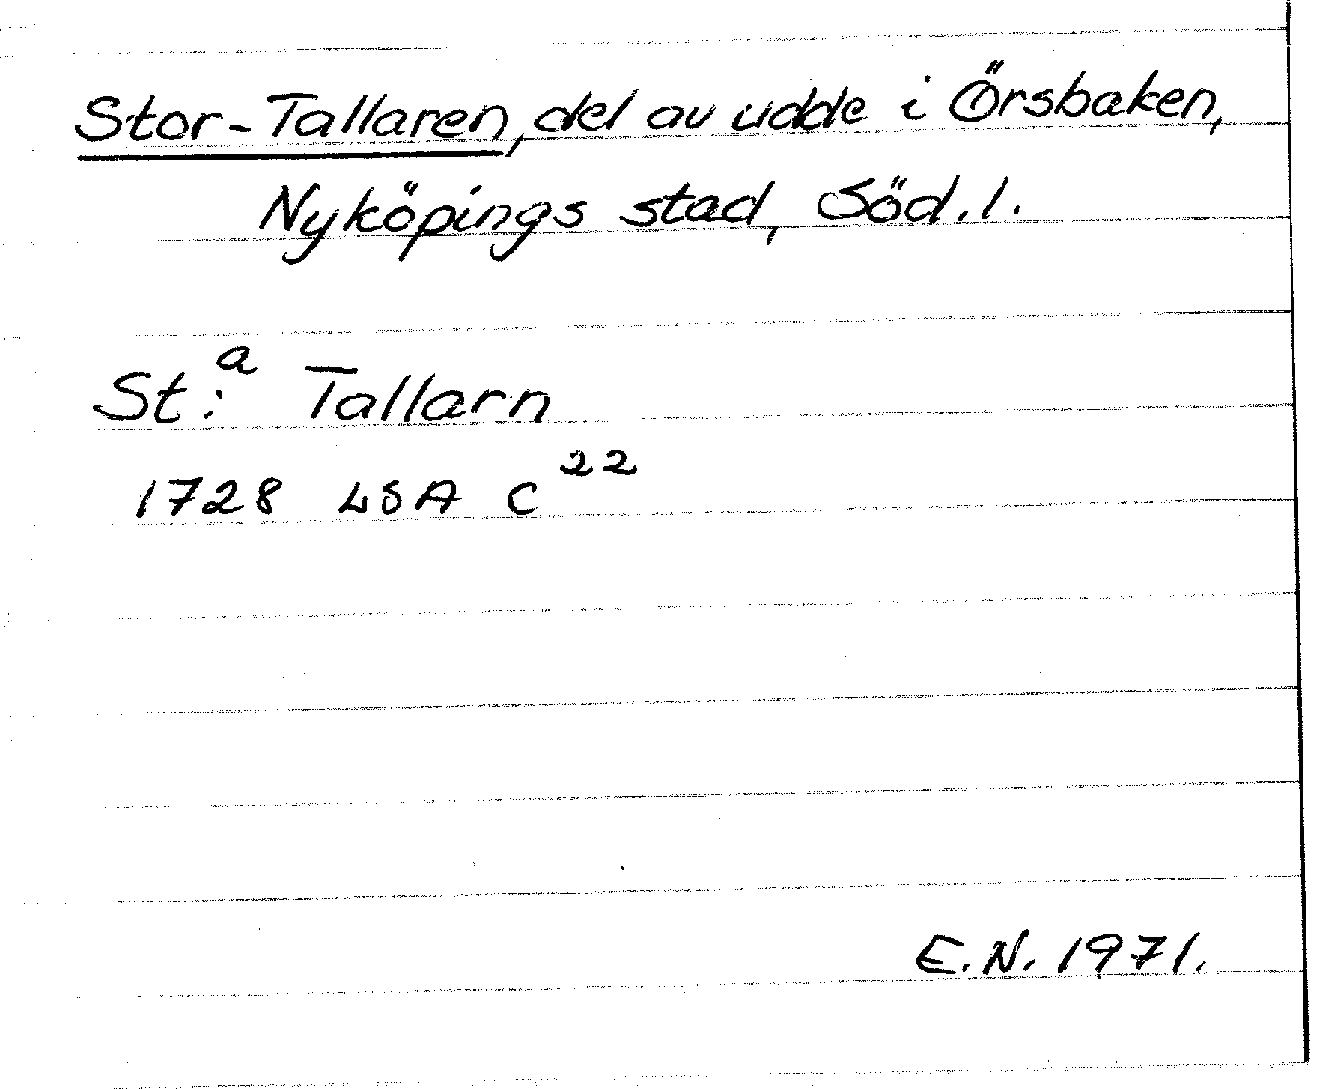 Stor-Tallaren, del av udde i Örsbaken,
Nyköpings stad, Söd. l.
St:a Tallarn
1728 LSA C22
E.N. 1971.